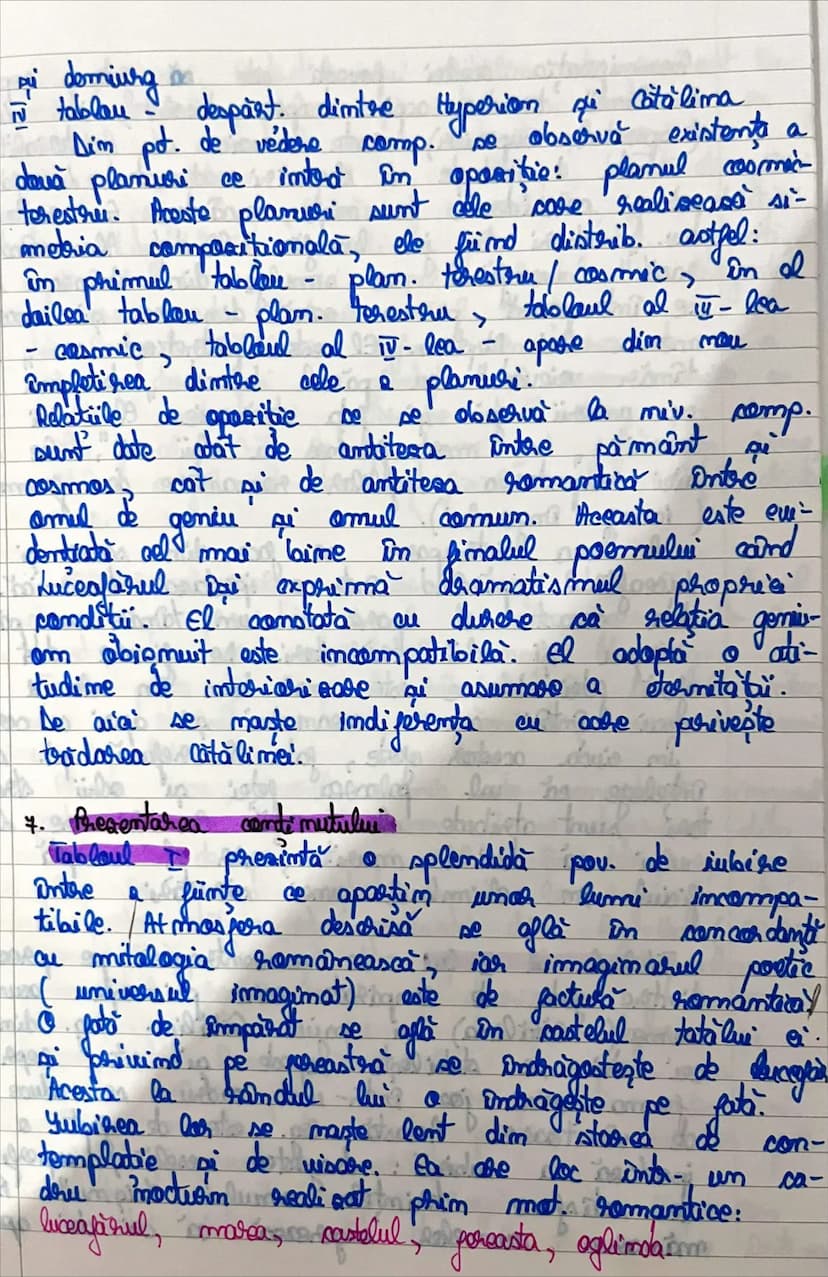 și demiurg
IV tablou - despărț. dintre Hyperion și Cătălina
Din pct. de vedere comp. se observă existența a
două planuri ce intră în opoziție: planul cosmic-
terestru. Aceste planuri sunt cele care realizează si-
metria compozițională, ele fiind distrib. astfel:
în primul tablou - plan. terestru / cosmic, în al
doilea tablou - plan. terestru, tabloul al III-lea
- cosmic, tabloul al IV-lea - apare din nou
împletirea dintre cele 2 planuri.
Relațiile de opoziție ce se observă la niv. comp.
sunt date atât de antiteza între pământ și
cosmos, cât și de antiteza romantică între
omul de geniu și omul comun. Aceasta este evi-
dențiată cel mai bine în finalul poemului când
Luceafărul își exprimă dramatismul propriei
condiții. El constată cu durere că relația geniu-
om obișnuit este incompatibilă. El adoptă o ati-
tudine de interiorizare și asumare a eternității.
De aici se naște indiferența cu care privește
trădarea Cătălinei.
7. Prezentarea conținutului
Tabloul I prezintă o splendidă pov. de iubire
între 2 ființe ce aparțin unor lumi incompa-
tibile. Atmosfera descrisă se află în concordanță
cu mitologia românească, iar imaginarul poetic
(universul imaginat) este de factură romantică)
O fată de împărat se află în castelul tatălui ei.
și privind pe fereastră se îndrăgostește de luceafăr
Acesta la rândul lui o îndrăgește pe fată.
Iubirea lor se naște lent din starea de con-
templație și de visare. Ea are loc într-un ca-
dru nocturn realizat prin mot. romantice:
luceafărul, marea, castelul, fereasta, oglinda